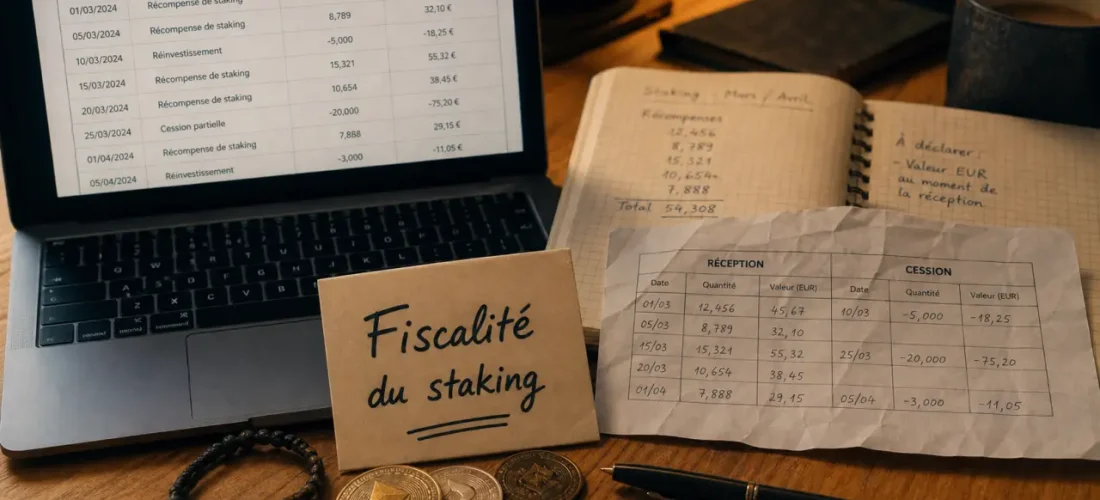 01/03/2024 Récompense de staking
05/03/2024 Récompense de staking 8,789 32,10 €
10/03/2024 Réinvestissement -5,000 -18,25 €
15/03/2024 Récompense de staking 15,321 55,32 €
20/03/2024 Récompense de staking 10,654 38,45 €
25/03/2024 Cession partielle -20,000 -75,20 €
01/04/2024 Récompense de staking 7,888 29,15 €
05/04/2024 Réinvestissement -3,000 -11,05 €
Staking Mars / Avril
Récompenses
12,456
8,789
15,321
10,654
7,888
Total 54,308
À déclarer :
- Valeur EUR
au moment de
la réception
RÉCEPTION CESSION
Date Quantité Valeur (EUR) Date Quantité Valeur (EUR)
01/03 12,456 45,67 10/03 -5,000 -18,25
05/03 8,789 32,10
15/03 15,321 55,32 25/03 -20,000 -75,20
20/03 10,654 38,45
01/04 7,888 29,15 05/04 -3,000 -11,05
Fiscalité
du staking